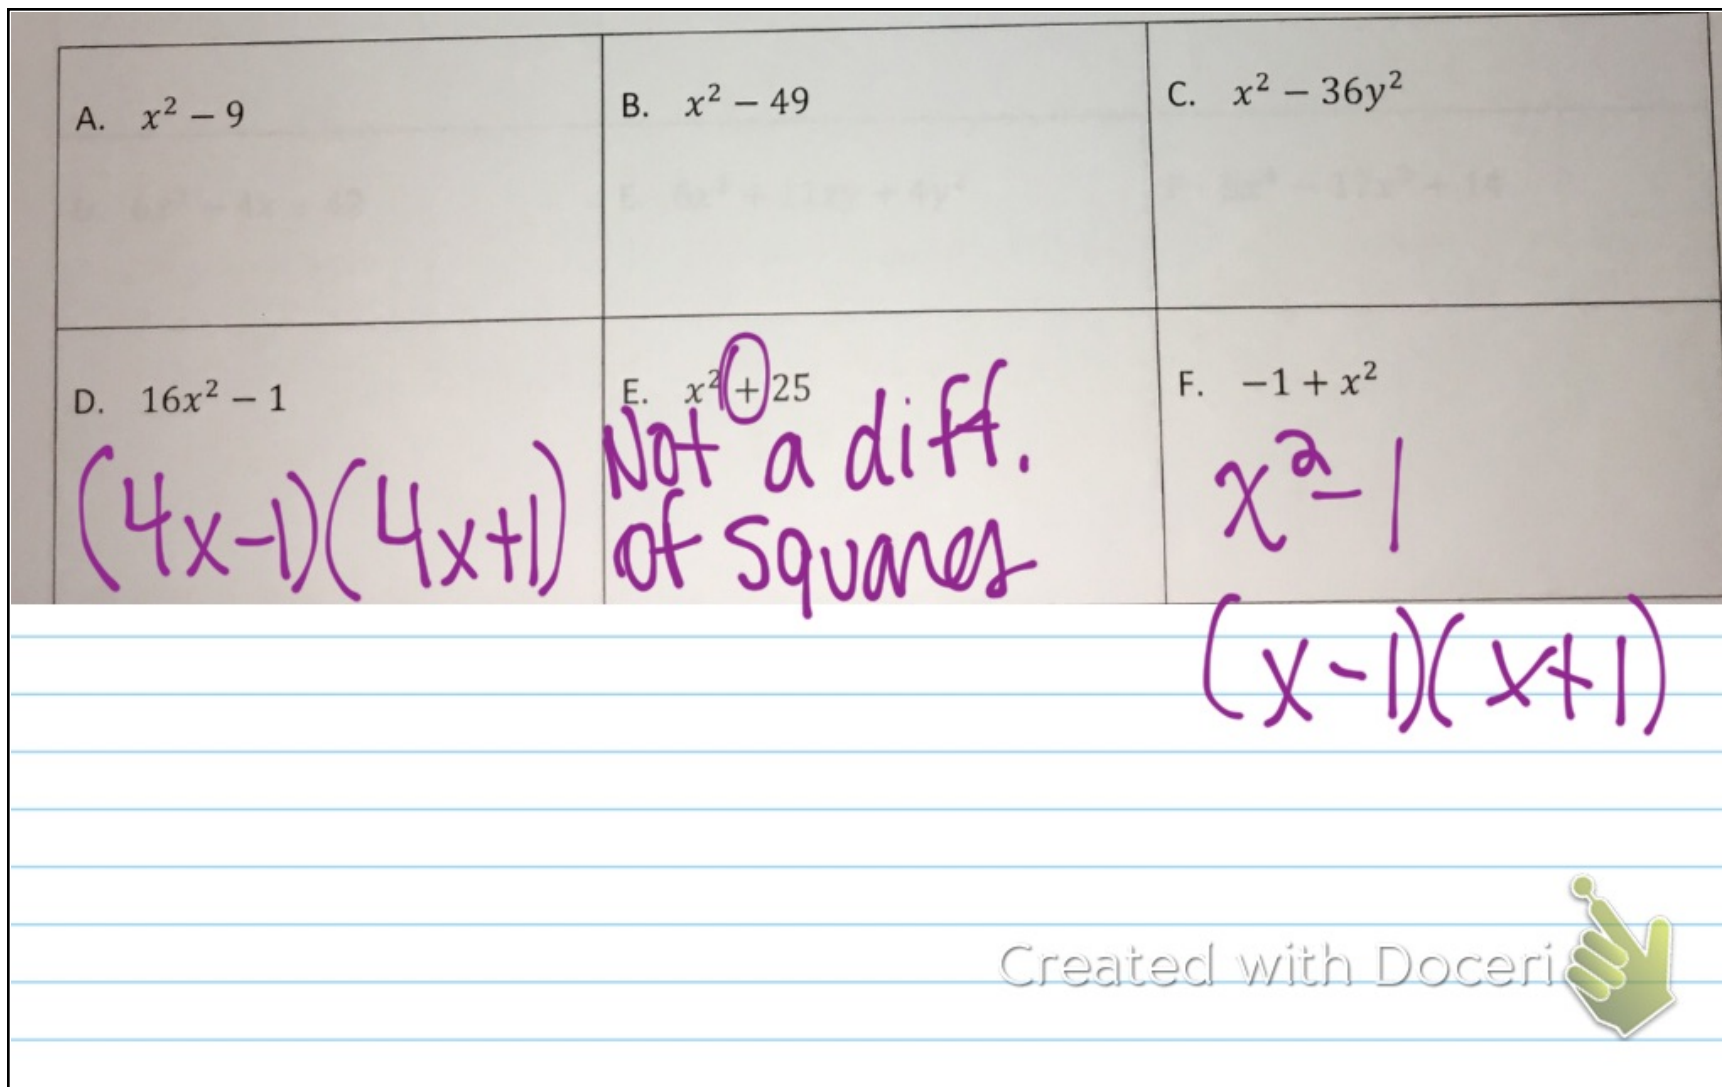 A. x² − 9
B. x² − 49
C. x² − 36y²
D. 16x² − 1
(4x-1)(4x+1)
E. x² + 25
Not a diff.
of squares
F. −1 + x²
x²-1
(x-1)(x+1)
Created with Doceri